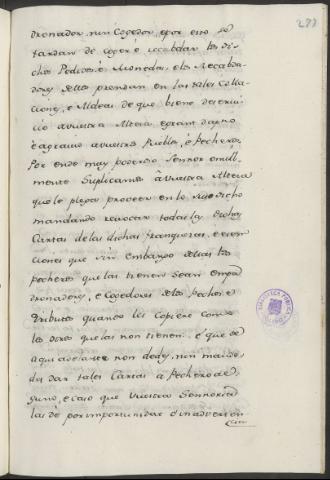 287
dronador, nin Cogedor, e por esso se
tardan de coger è recabdar los di-
chos Pedidos, è Monedas, e los Recabda-
dores dellos prendan en las tales Colla-
ciones, è Aldeas de que biene deservi-
cio a vuestra Alteza, e grant dapno
è agravio a vuestros Pueblos, è Pecheros.
Por ende muy poderoso Sennor omill-
mente Suplicamos à Vuestra Alteza
que le plega proveer en lo susodicho
mandando revocar todas las dichas
Cartas de las dichas franquezas, è esen-
ciones que sin embargo dellas los
pecheros que las tienen sean empa-
dronadores, e Cogedores de los pechos, è
tributos quando les copiere como
los otros que las non tienen. è que de
aqui adelante non dedes, nin mande-
des dar tales Cartas a Pechero al-
guno, e caso que Vuestra Sennoria
las dè por importunidat ò inadverten
cia